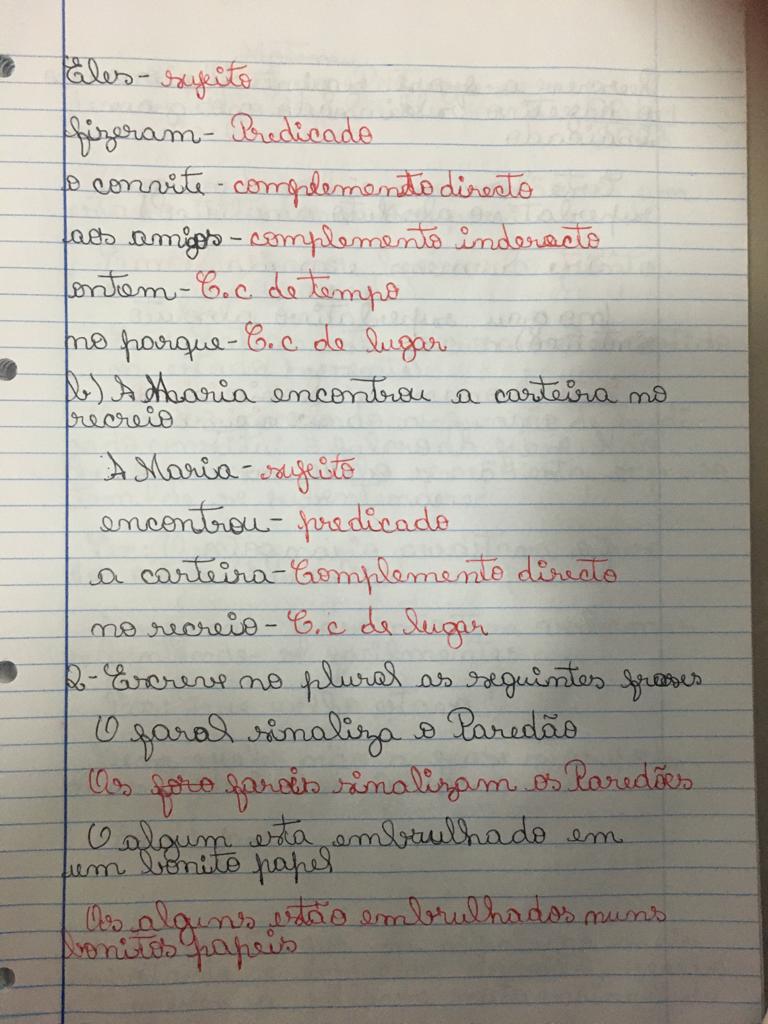 Eles - sujeito
fizeram - Predicado
o convite - complemento directo
aos amigos - complemento inderecto
ontem - C.c de tempo
no parque - C.c de lugar
b) A Maria encontrou a carteira no
recreio
A Maria - sujeito
encontrou - predicado
a carteira - Complemento directo
no recreio - C.c de lugar
2- Escreve no plural as seguintes frases
O farol sinaliza o Paredão
Os farois sinalizam os Paredões
O algum esta embrulhado em
um bonito papel
Os alguns estão embrulhados nuns
bonitos papeis